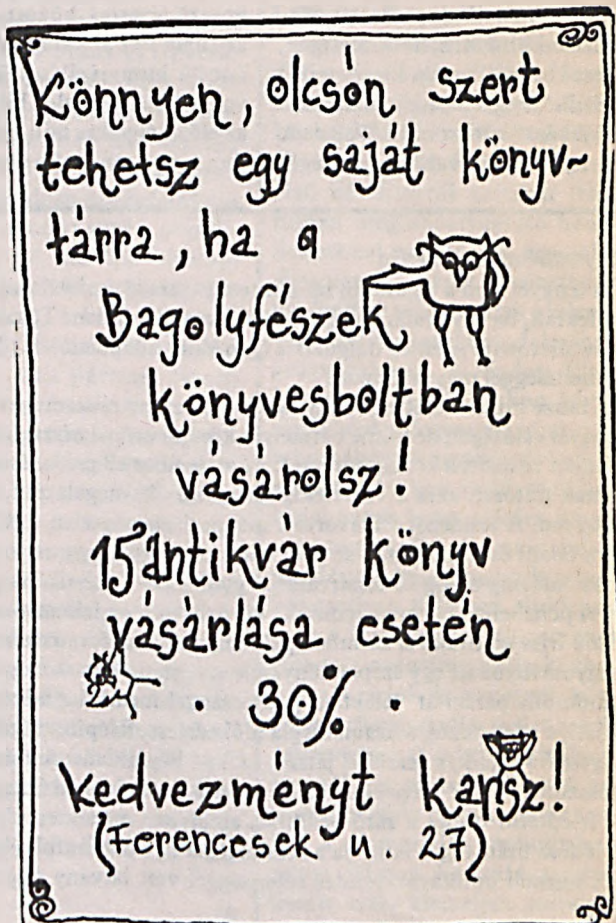 Könnyen, olcsón szert
tehetsz egy saját könyv~
tárra, ha a
Bagolyfészek
könyvesboltban
vásárolsz!
15 antikvár könyv
vásárlása esetén
· 30% ·
kedvezményt kapsz!
(Ferencesek u. 27)